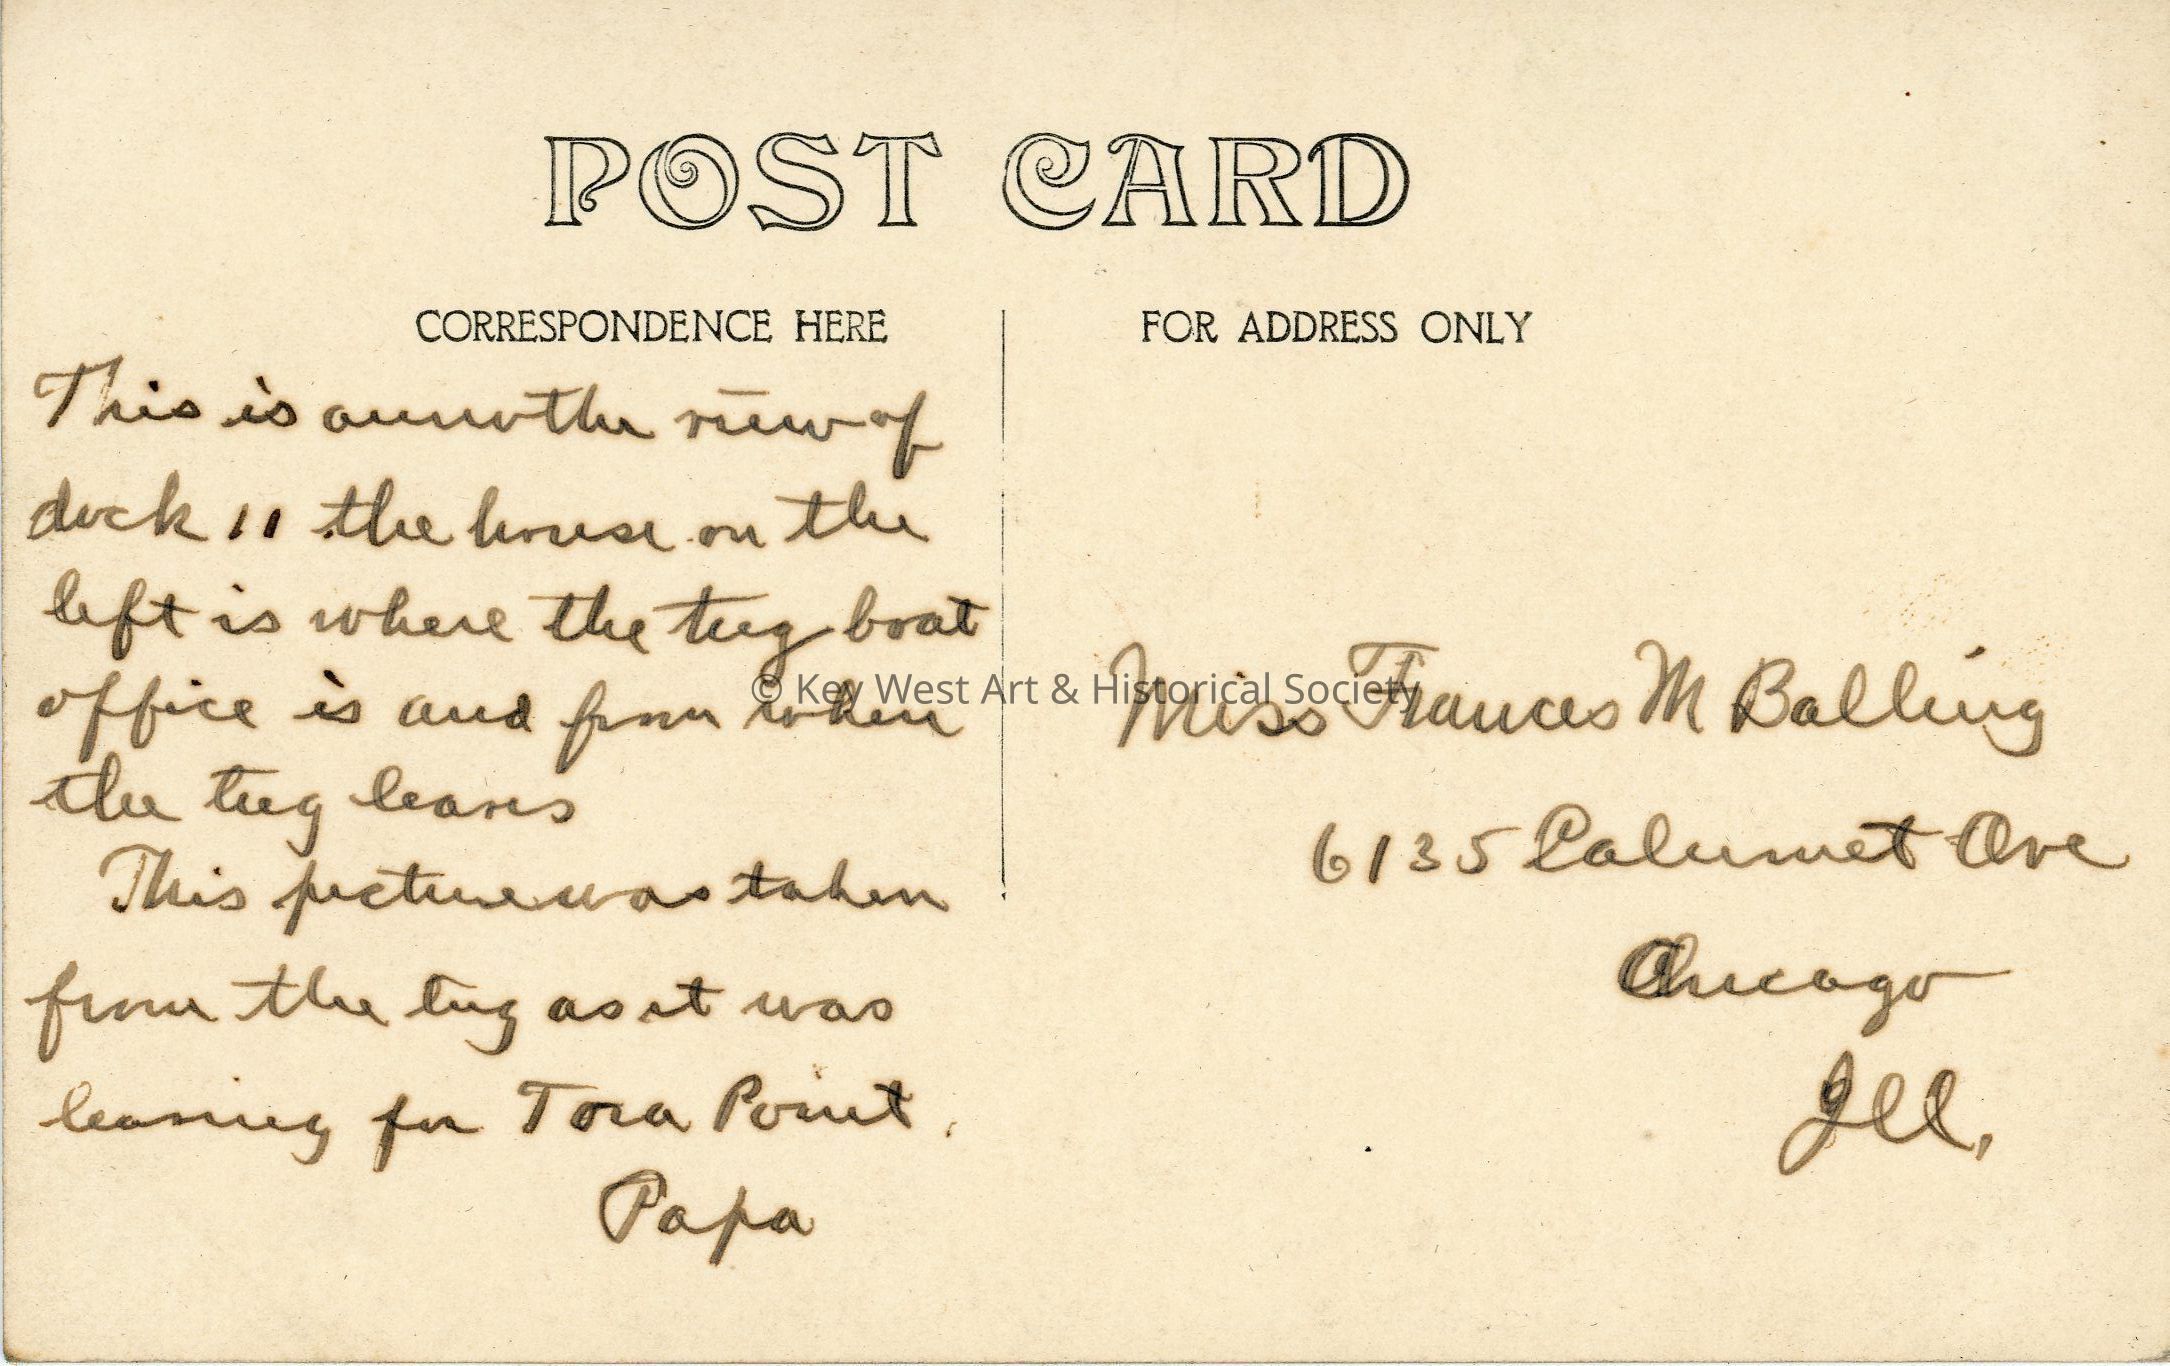 POST CARD
CORRESPONDENCE HERE
FOR ADDRESS ONLY
This is annother view of
dock 11 the house on the
left is where the tug boat
office is and from when
the tug leaves
This picture was taken
from the tug as it was
leaving for Tora Point.
Papa
Miss Frances M Balling
6135 Calumet Ave
Chicago
Ill.
© Key West Art & Historical Society